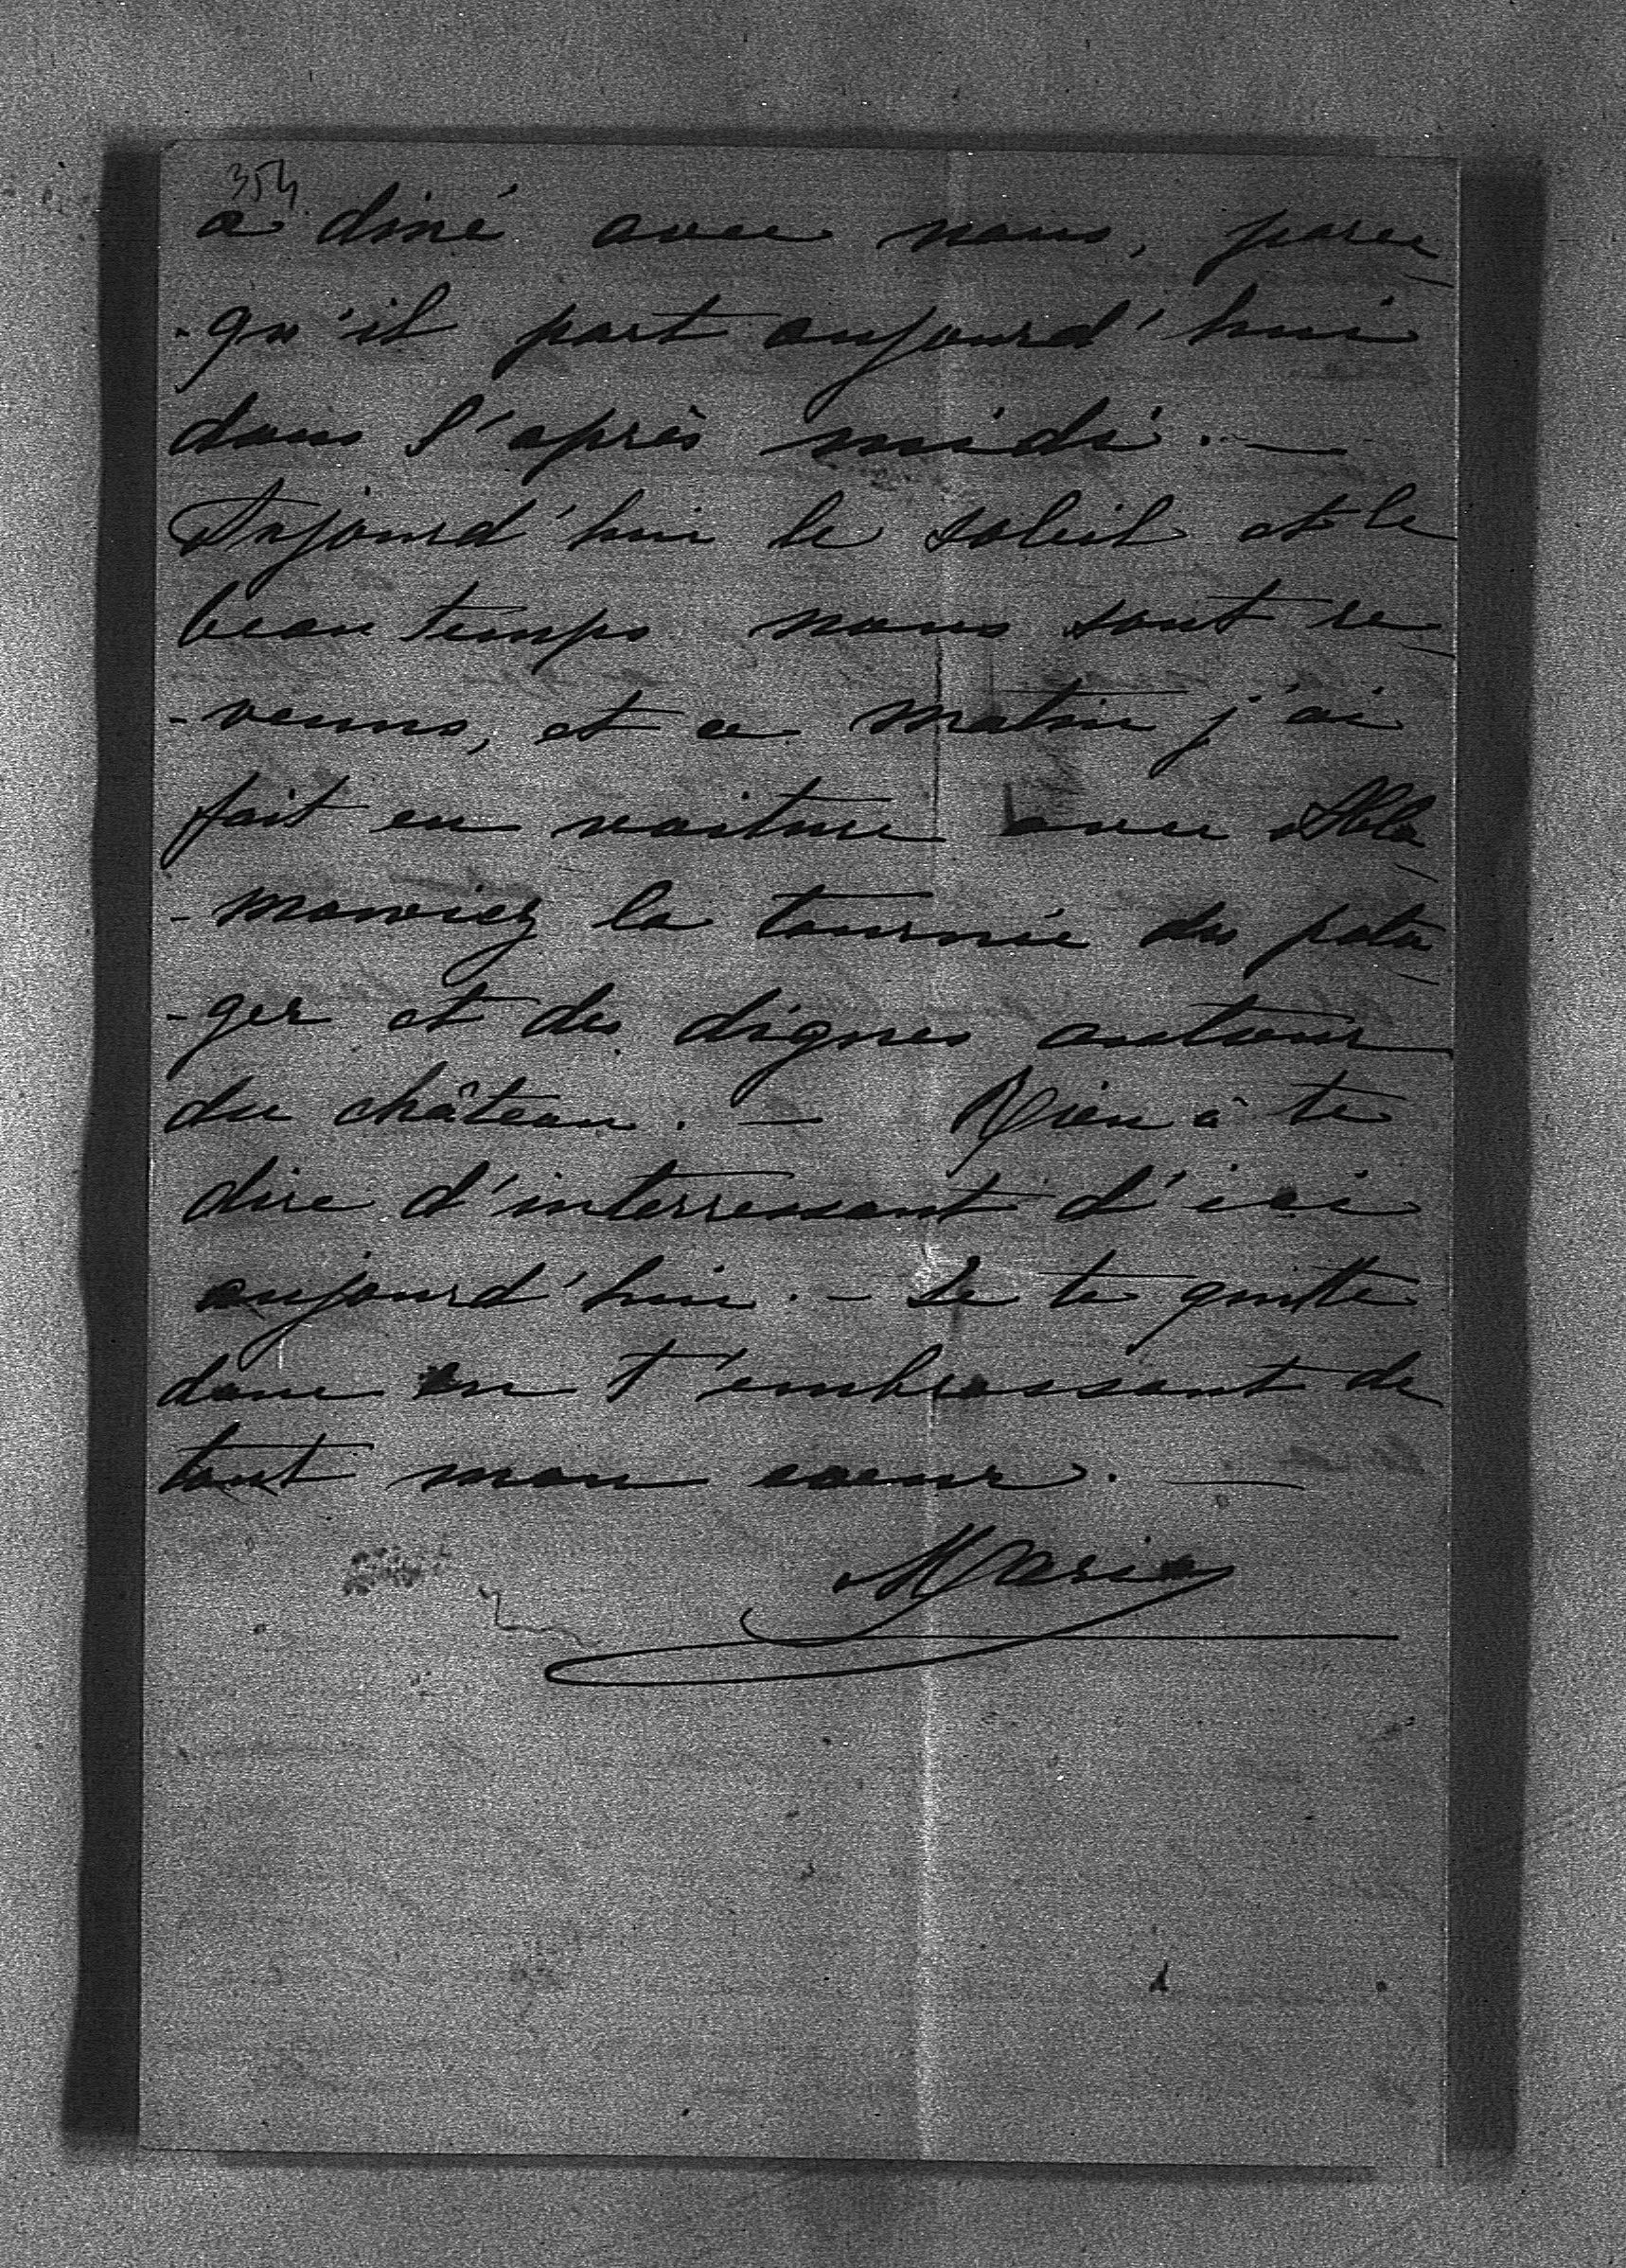 354.
a diné avec nous, parce
-qu'il part aujourd'hui
dans l'après midi. —
Aujourd'hui le soleil et le
beau temps nous sont re
-venus, et ce matin j'ai
fait en voiture avec
-mowicz la tournée du pota
-ger et des dignes autour
du château. — Rien à te
dire d'interressant d'ici
aujourd'hui. — Je te quitte
donc en t'embrassant de
tout mon coeur. —
Marie